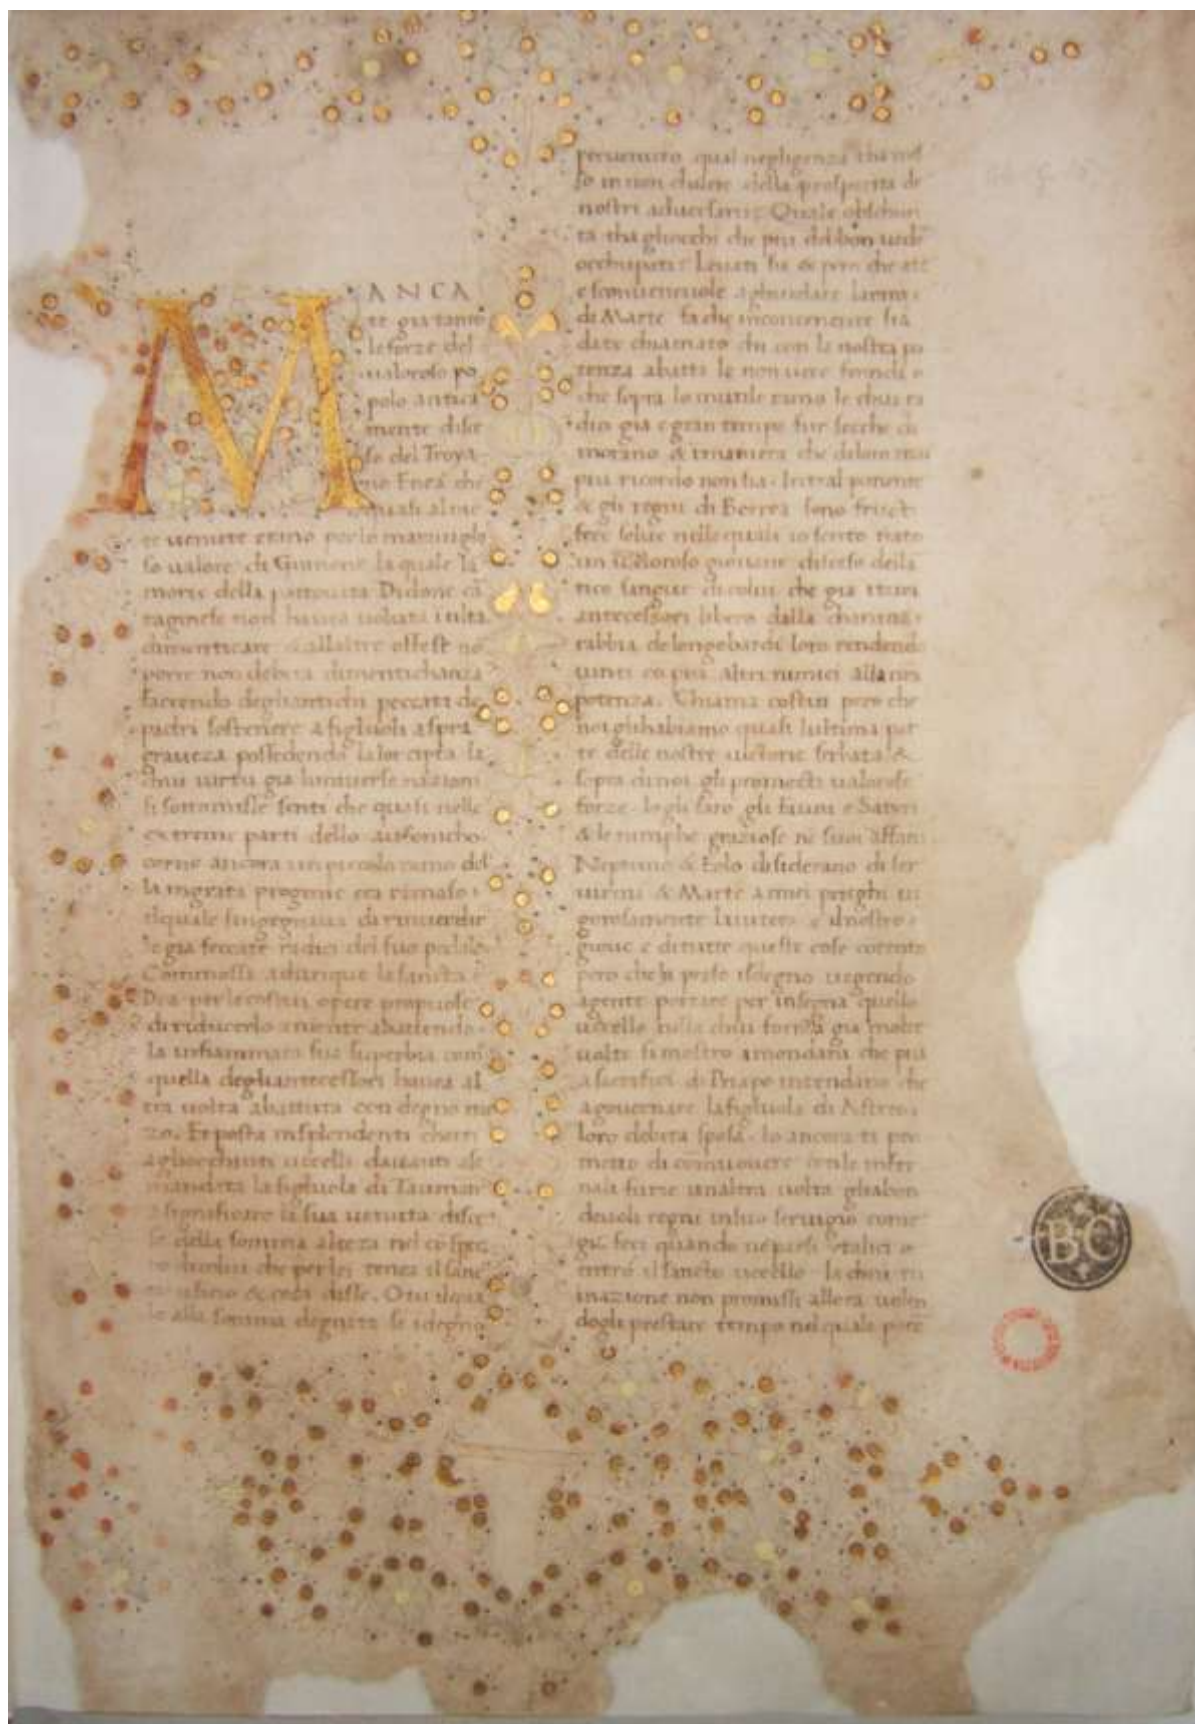 MANCA
te gia tanto
le forze del
ualoroso po
polo antica
mente disce
so del Troya
no Enea che
quasi al nie
te uenute erano per lo marauiglo
so ualore di Giunone la quale la
morte della pattouita Didone ca
taginese non hauea uoluta inulta
dimenticare & allaltre offese no
porre non debita dimentichanza
faccendo degliantichi peccati de
padri sostenere a figluoli aspra
graueza possedendo la lor cipta la
chui uirtu gia luniuerse nazioni
si sottomisse senti che quasi nelle
extreme parti dello ausonicho
corno ancora un piccolo ramo del
la ingrata progenie era rimaso
ilquale singegnaua di rinuerdir
le gia seccate radici del suo pedale
Commossa adunque la sancta
Dea per le costui opere propuose
di riducerlo a niente abattendo
la infiammata sua superbia come
quella degliantecessori hauea al
tra uolta abattuta con degno me
zo. Et posta in splendenti charri
agliocchiuti uccelli dauanti a se
mandata la figluola di Taumante
a significare la sua uenuta disce
se della somma alteza nel cospec
to di colui che per lei tenea il sanc
to uficio & cosi disse. O tu il qua
le alla somma degnita se idegno
peruenuto qual negligenza tha mes
so in non chalere della prosperita de
nostri aduersarii: Quale obschuri
ta tha gliocchi che piu debbon uede
occhupati: Leuati su & pero che
e sconueneuole a guidare larmi
di Marte fa che incontenente sia
date chiamato chi con la nostra po
tenza abatta le non uere frondi
che sopra lo inutile ramo le chui ra
dici gia e gran tempo fur secche di
morano & in maniera che di loro mai
piu ricordo non sia. Intra l ponente
& gli regni di Borrea sono fructi
fere selue nelle quali io sento nato
un ualoroso giouane disceso della
tico sangue di colui che gia i tuoi
antecessori libero dalla chanina
rabbia de longobardi loro rendendo
uinti co piu altri nimici alla nra
potenza. Chiama costui pero che
noi glihabiamo quasi lultima par
te delle nostre uictorie serbata &
sopra di noi gli prometti ualorose
forze. Io gli faro gli fauni e Satiri
& le nimphe graziose ne suoi affani
Neptuno & Eolo disiderano di ser
uirmi & Marte a miei prieghi ui
gorosamente laiutera e il nostro
gioue e di tutte queste cose contento
pero che ha preso isdegno uegendo
agente portare per insegna quello
uccello nella chui forma gia molte
uolte si mostro a mondani che piu
a sacrifici di Priapo intendano che
a gouernare la figluola di Astrea
loro debita sposa. Io ancora ti pro
metto di comuouere con le infer
nali furie unaltra uolta gliabon
deuoli regni in suo seruigio come
gia feci quando ne paesi Italici
entro il sancto uccello la chui ru
inazione non promissi allora uolen
dogli prestare tempo nel quale pote
BC